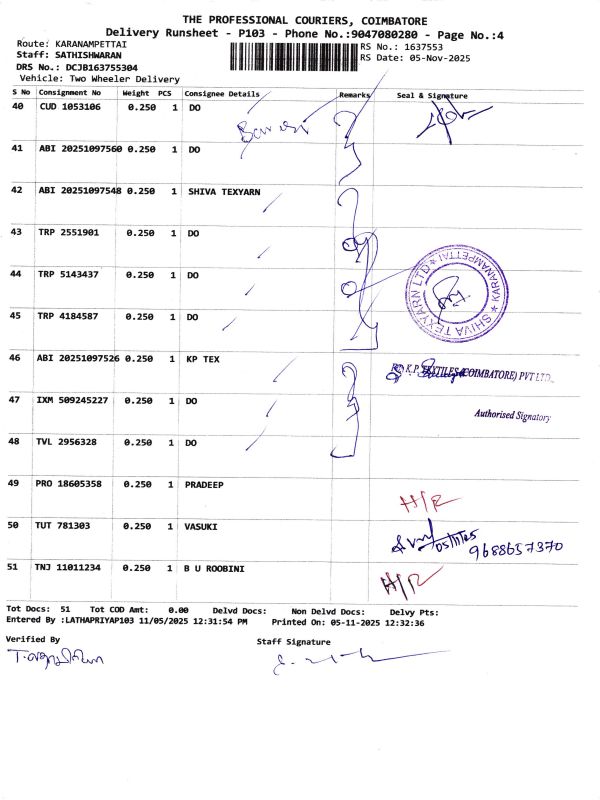 THE PROFESSIONAL COURIERS, COIMBATORE
Delivery Runsheet - P103 - Phone No.:9047080280 - Page No.:4
Route: KARANAMPETTAI
RS No.: 1637553
Staff: SATHISHWARAN
RS Date: 05-Nov-2025
DRS No.: DCJB163755304
Vehicle: Two Wheeler Delivery
S No Consignment No Weight PCS Consignee Details Remarks Seal & Signature
40 CUD 1053106 0.250 1 DO
41 ABI 20251097560 0.250 1 DO
42 ABI 20251097548 0.250 1 SHIVA TEXYARN
43 TRP 2551901 0.250 1 DO
44 TRP 5143437 0.250 1 DO
SHIVA TEXYARN LTD ★ KARANAMPETTAI ★
45 TRP 4184587 0.250 1 DO
46 ABI 20251097526 0.250 1 KP TEX
K.P. TEXTILES (COIMBATORE) PVT LTD.,
47 IXM 509245227 0.250 1 DO
Authorised Signatory
48 TVL 2956328 0.250 1 DO
49 PRO 18605358 0.250 1 PRADEEP
H/R
50 TUT 781303 0.250 1 VASUKI
9688657370
51 TNJ 11011234 0.250 1 B U ROOBINI
H/R
Tot Docs: 51 Tot COD Amt: 0.00 Delvd Docs: Non Delvd Docs: Delvy Pts:
Entered By :LATHAPRIYAP103 11/05/2025 12:31:54 PM Printed On: 05-11-2025 12:32:36
Verified By
Staff Signature